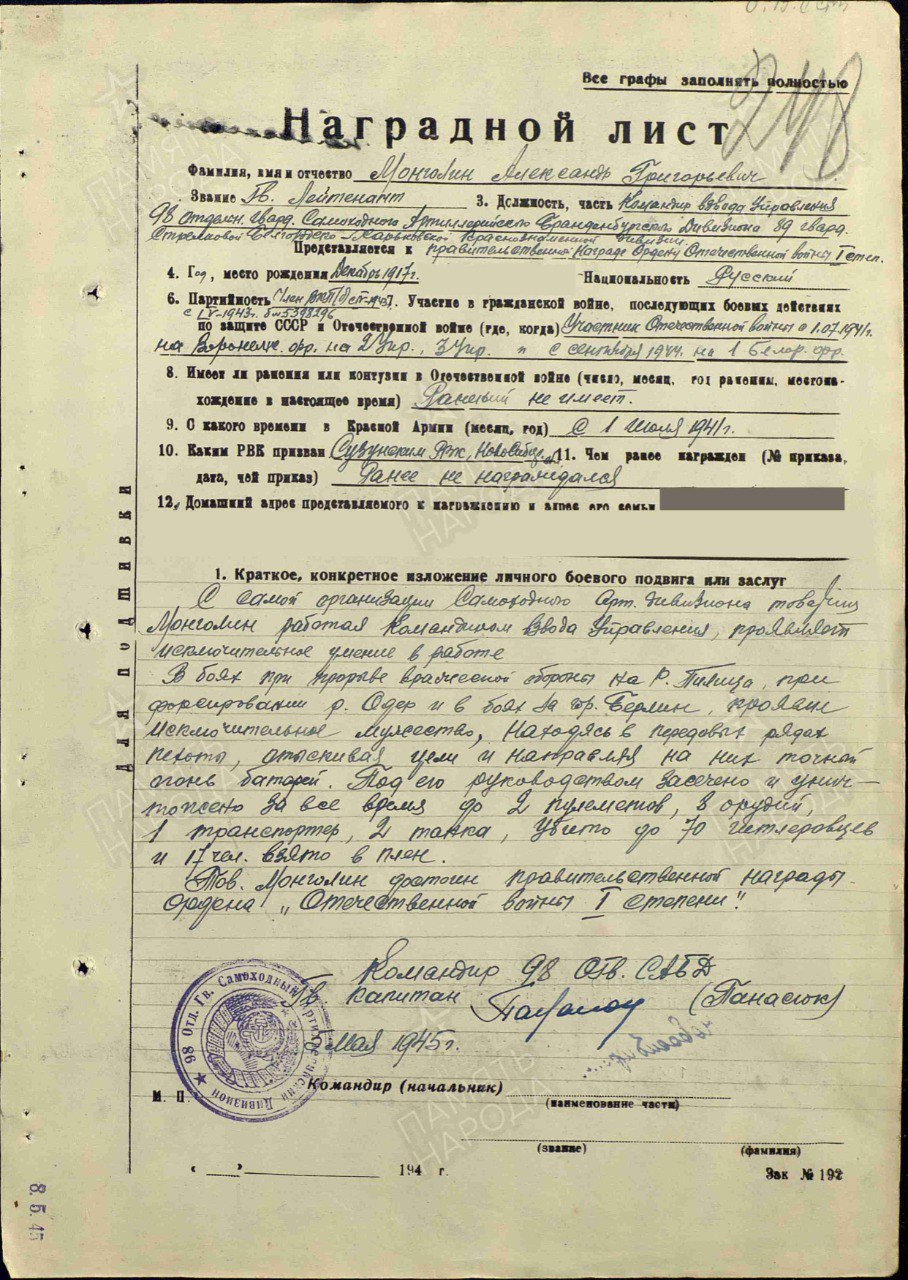 Все графы заполнять полностью
248
Наградной лист
Фамилия, имя и отчество Монголин Александр Григорьевич
Звание Гв. Лейтенант 3. Должность, часть Командир взвода Управления
98 Отдельн. Гвард. Самоходного Артиллерийского Бранденбургского Дивизиона 89 гвард.
Стрелковой Белгородско Харьковской Краснознаменной дивизии
Представляется к правительственной награде Ордену Отечественной войны I степ.
4. Год, место рождения Декабрь 1917 г.
Национальность Русский
6. Партийность Член ВКП(б) Участие в гражданской войне, последующих боевых действиях
с IV-1943г. б№5398296
по защите СССР и Отечественной войне (где, когда) Участник Отечественной войны с 1.07.1941г.
на Воронеж. фр. на 2 Укр., 3 Укр. и с сентября 1944 на 1 Белор. фр.
8. Имеет ли ранения или контузии в Отечественной войне (число, месяц, год ранения, местона-
хождение в настоящее время) Ранений не имеет.
9. С какого времени в Красной Армии (месяц, год) С 1 Июля 1941 г.
10. Каким РВК призван Сузунским Рвк, Новосибир. 11. Чем ранее награжден (№ приказа,
дата, чей приказ) Ранее не награждался
12. Домашний адрес представляемого к награждению и адрес его семьи
1. Краткое, конкретное изложение личного боевого подвига или заслуг
С самой организации Самоходного Арт. дивизиона товарищ
Монголин работая Командиром Взвода Управления, проявляет
исключительное умение в работе
В боях при прорыве вражеской обороны на Р. Пилица, при
форсировании р. Одер и в боях за гор. Берлин, проявил
исключительное мужество, находясь в передовых рядах
пехоты, отыскивая цели и направляя на них точной
огонь батарей. Под его руководством засечено и унич-
тожено за все время до 2 пулеметов, 3 орудий,
1 транспортер, 2 танка, убито до 70 гитлеровцев
и 17 чел. взято в плен.
Тов. Монголин достоин правительственной награды
ордена „Отечественной войны I степени".
Командир 98 ОГв. САД
Гв. капитан (Панасюк)
Мая 1945г.
98 Отд. Гв. Самоходный Артиллерийский Дивизион
Командир (начальник)
М. П.
(наименование части)
(звание) (фамилия)
« » 194 г.
Зак № 192
Для подшивки
8.5.45
ПАМЯТЬ НАРОДА